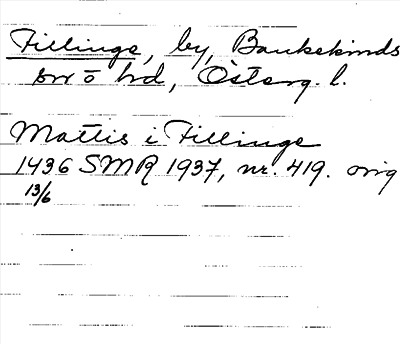 Fillinge, by, Bankekinds
sn o hd, Österg. l.
Mattis i Fillinge
1436 SMR 1937, nr. 419. orig
13/6